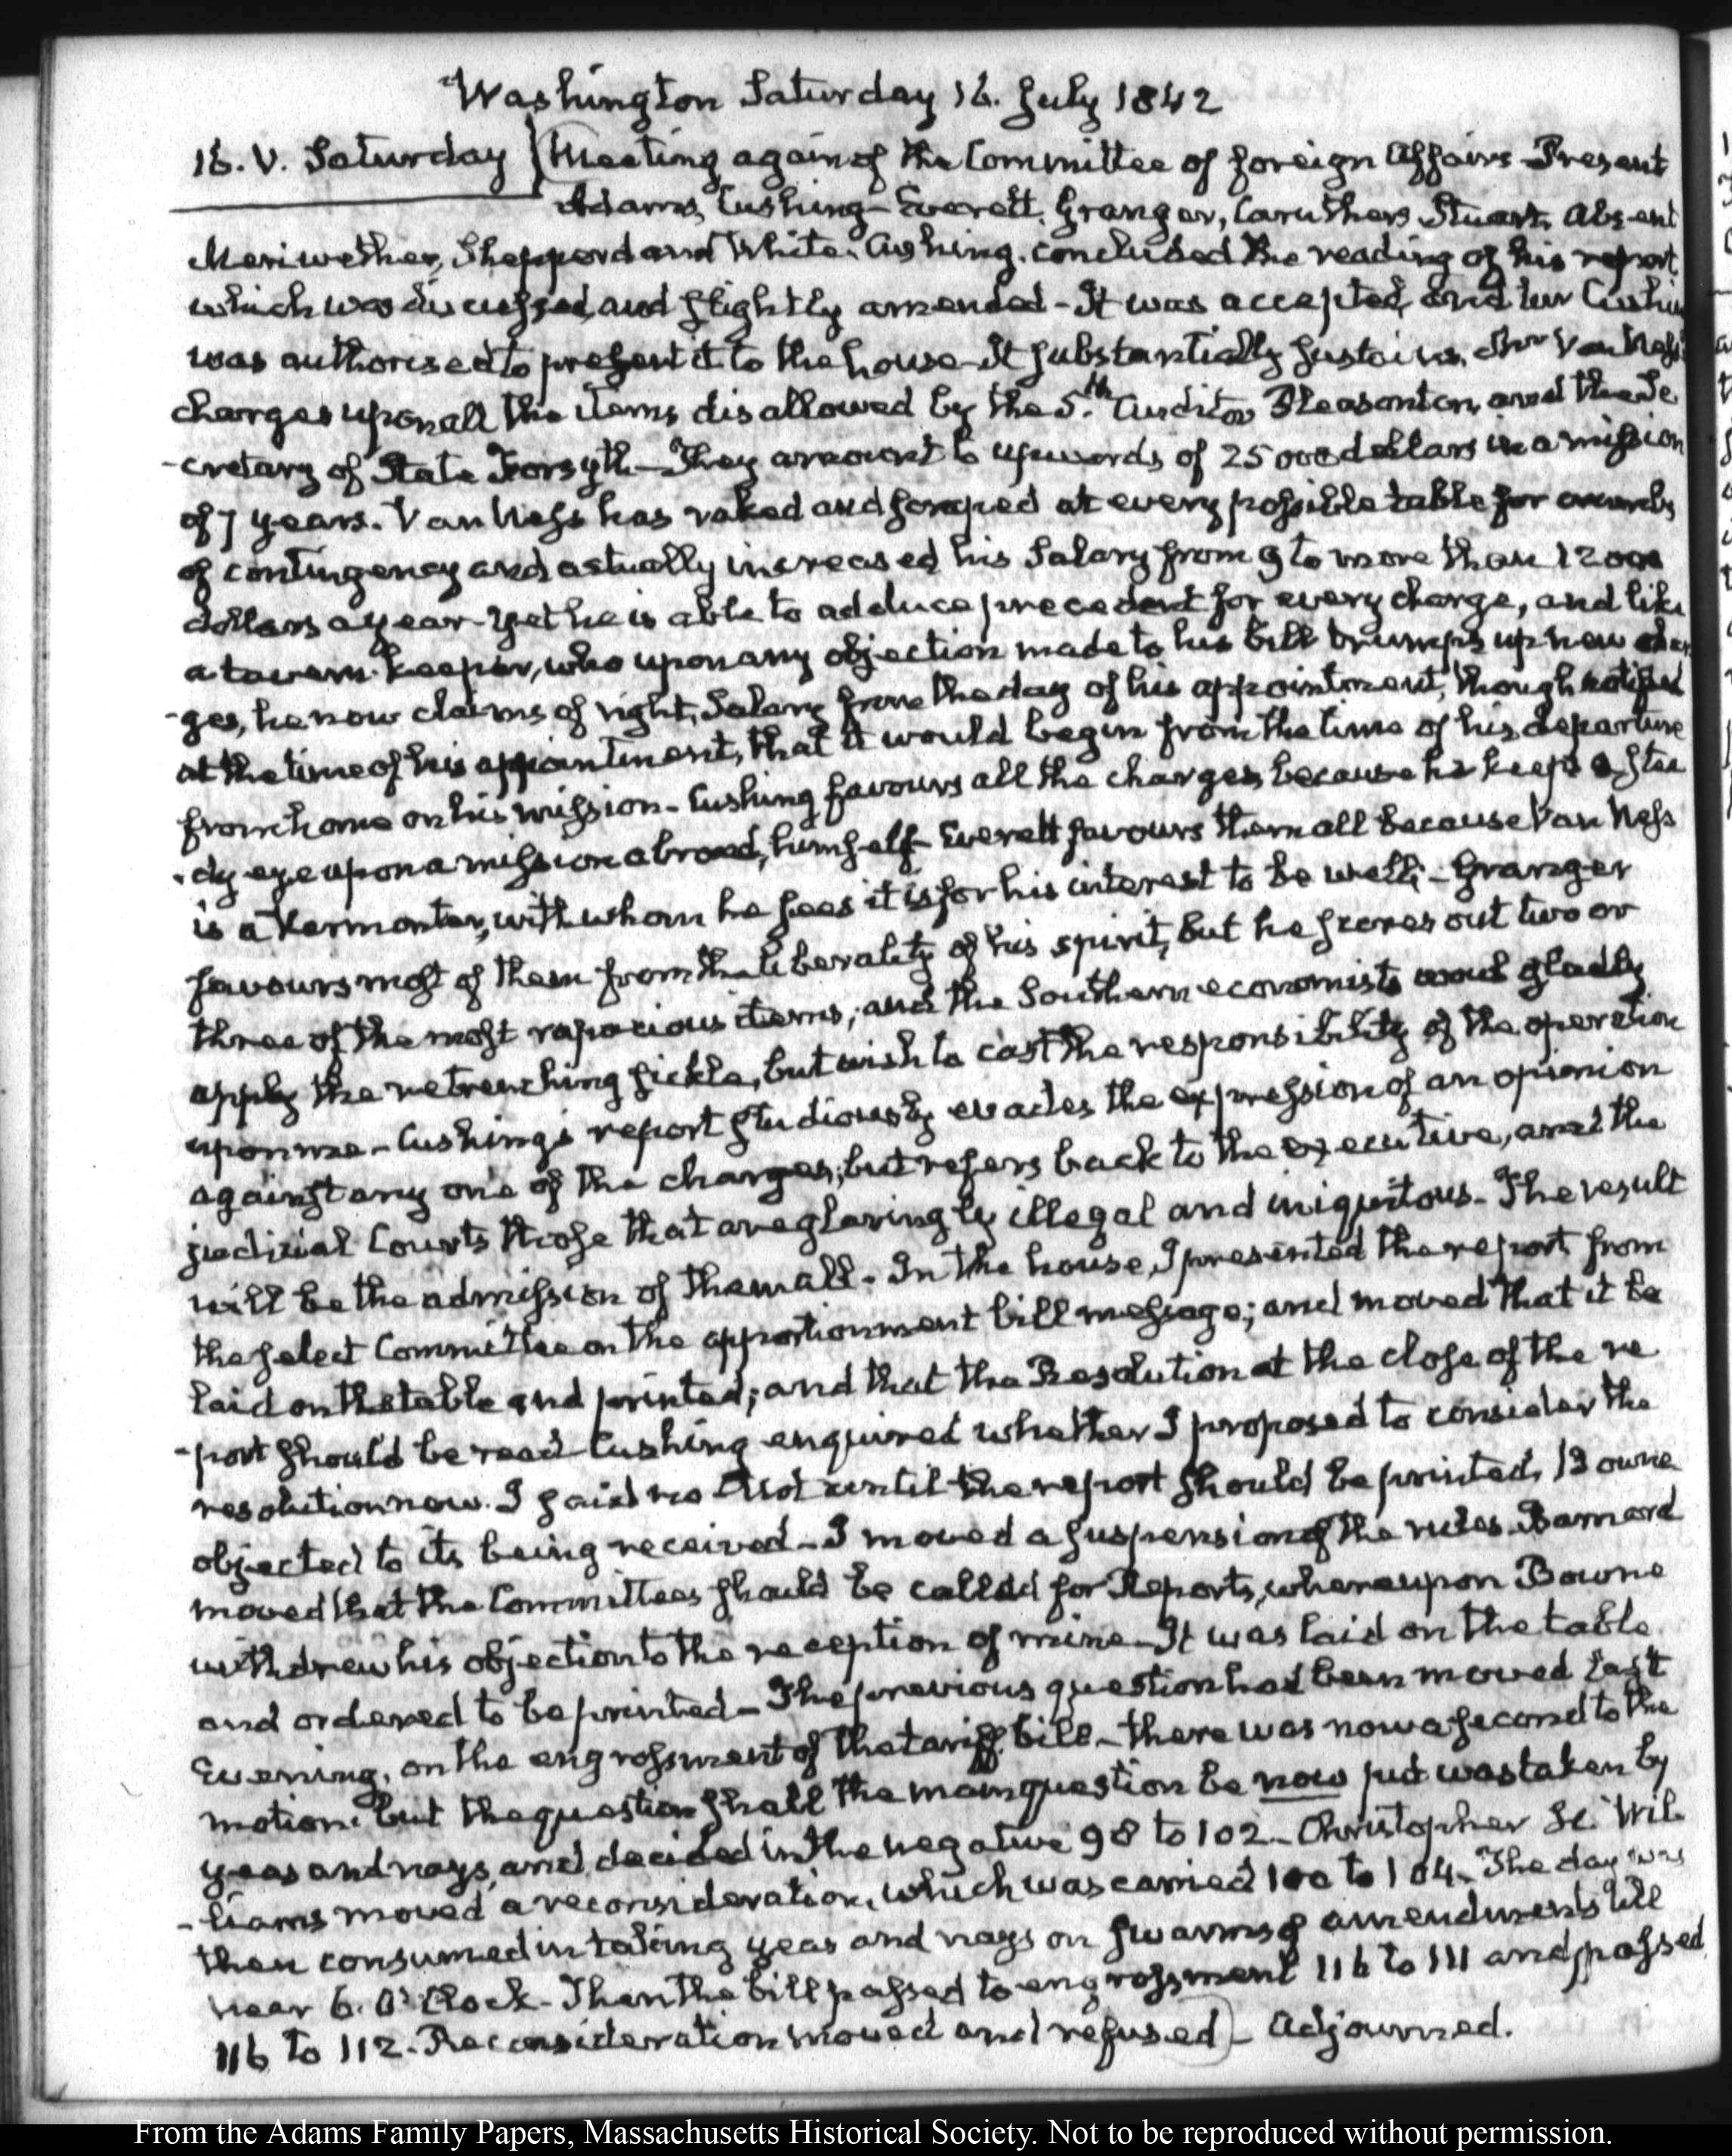 Washington Saturday 16. July 1842
16. V. Saturday Meeting again of the Committee of foreign Affairs Present
Adams, Cushing - Everett, Granger, Caruthers Stuart. Absent
Meriwether, Shepperd and White. Cushing concluded the reading of his report
which was discussed, and slightly amended - It was accepted, and Mr Cushing
was authorised to present it to the house - It substantially sustains Mr Van Ness's
charges upon all the items disallowed by the 5.th Auditor Pleasonton, and the Se
-cretary of State Forsyth - They amount to upwards of 25000 dollars in a mission
of 7 years. Van Ness has raked and scraped at every possible table for
of contingency and actually increased his Salary from 9 to more than 12000
dollars a year - Yet he is able to adduce precedent for every charge, and like
a tavern-keeper, who upon any objection made to his bill trumps up new char
-ges, he now claims of right, Salary from the day of his appointment, though notified
at the time of his appointment, that it would begin from the time of his departure
from home on his mission - Cushing favours all the charges, because he keeps a stea
-dy eye upon a mission abroad, himself - Everett favours them all because Van Ness
is a Vermonter, with whom he sees it is for his interest to be well; - Granger
favours most of them from the liberality of his spirit, but he scores out two or
three of the most rapacious items; and the Southern economists would gladly
apply the retrenching sickle, but wish to cast the responsibility of the operation
upon me - Cushing's report studiously evades the expression of an opinion
against any one of the charges; but refers back to the executive, and the
judicial Courts those that are glaringly illegal and iniquitous - The result
will be the admission of them all - In the house, I presented the report from
the select Committee on the apportionment bill message; and moved that it be
laid on the table and printed; and that the Resolution at the close of the re
-port should be read - Cushing enquired whether I proposed to consider the
resolution now. I said no - Not until the report should be printed. Bowne
objected to its being received - I moved a suspension of the rules - Barnard
moved that the Committees should be called for Reports, whereupon Bowne
withdrew his objection to the reception of mine - It was laid on the table
and ordered to be printed - The previous question had been moved last
Evening, on the engrossment of the tariff bill - there was now a second to the
motion. but the question shall the main question be now put was taken by
yeas and nays, and decided in the negative 98 to 102 - Christopher H. Wil
-liams moved a reconsideration, which was carried 100 to 104. The day was
then consumed in taking yeas and nays on swarms of amendments till
near 6. O'Clock - Then the bill passed to engrossment 116 to 111 and passed
116 to 112 - Reconsideration moved and refused - Adjourned.
From the Adams Family Papers, Massachusetts Historical Society. Not to be reproduced without permission.